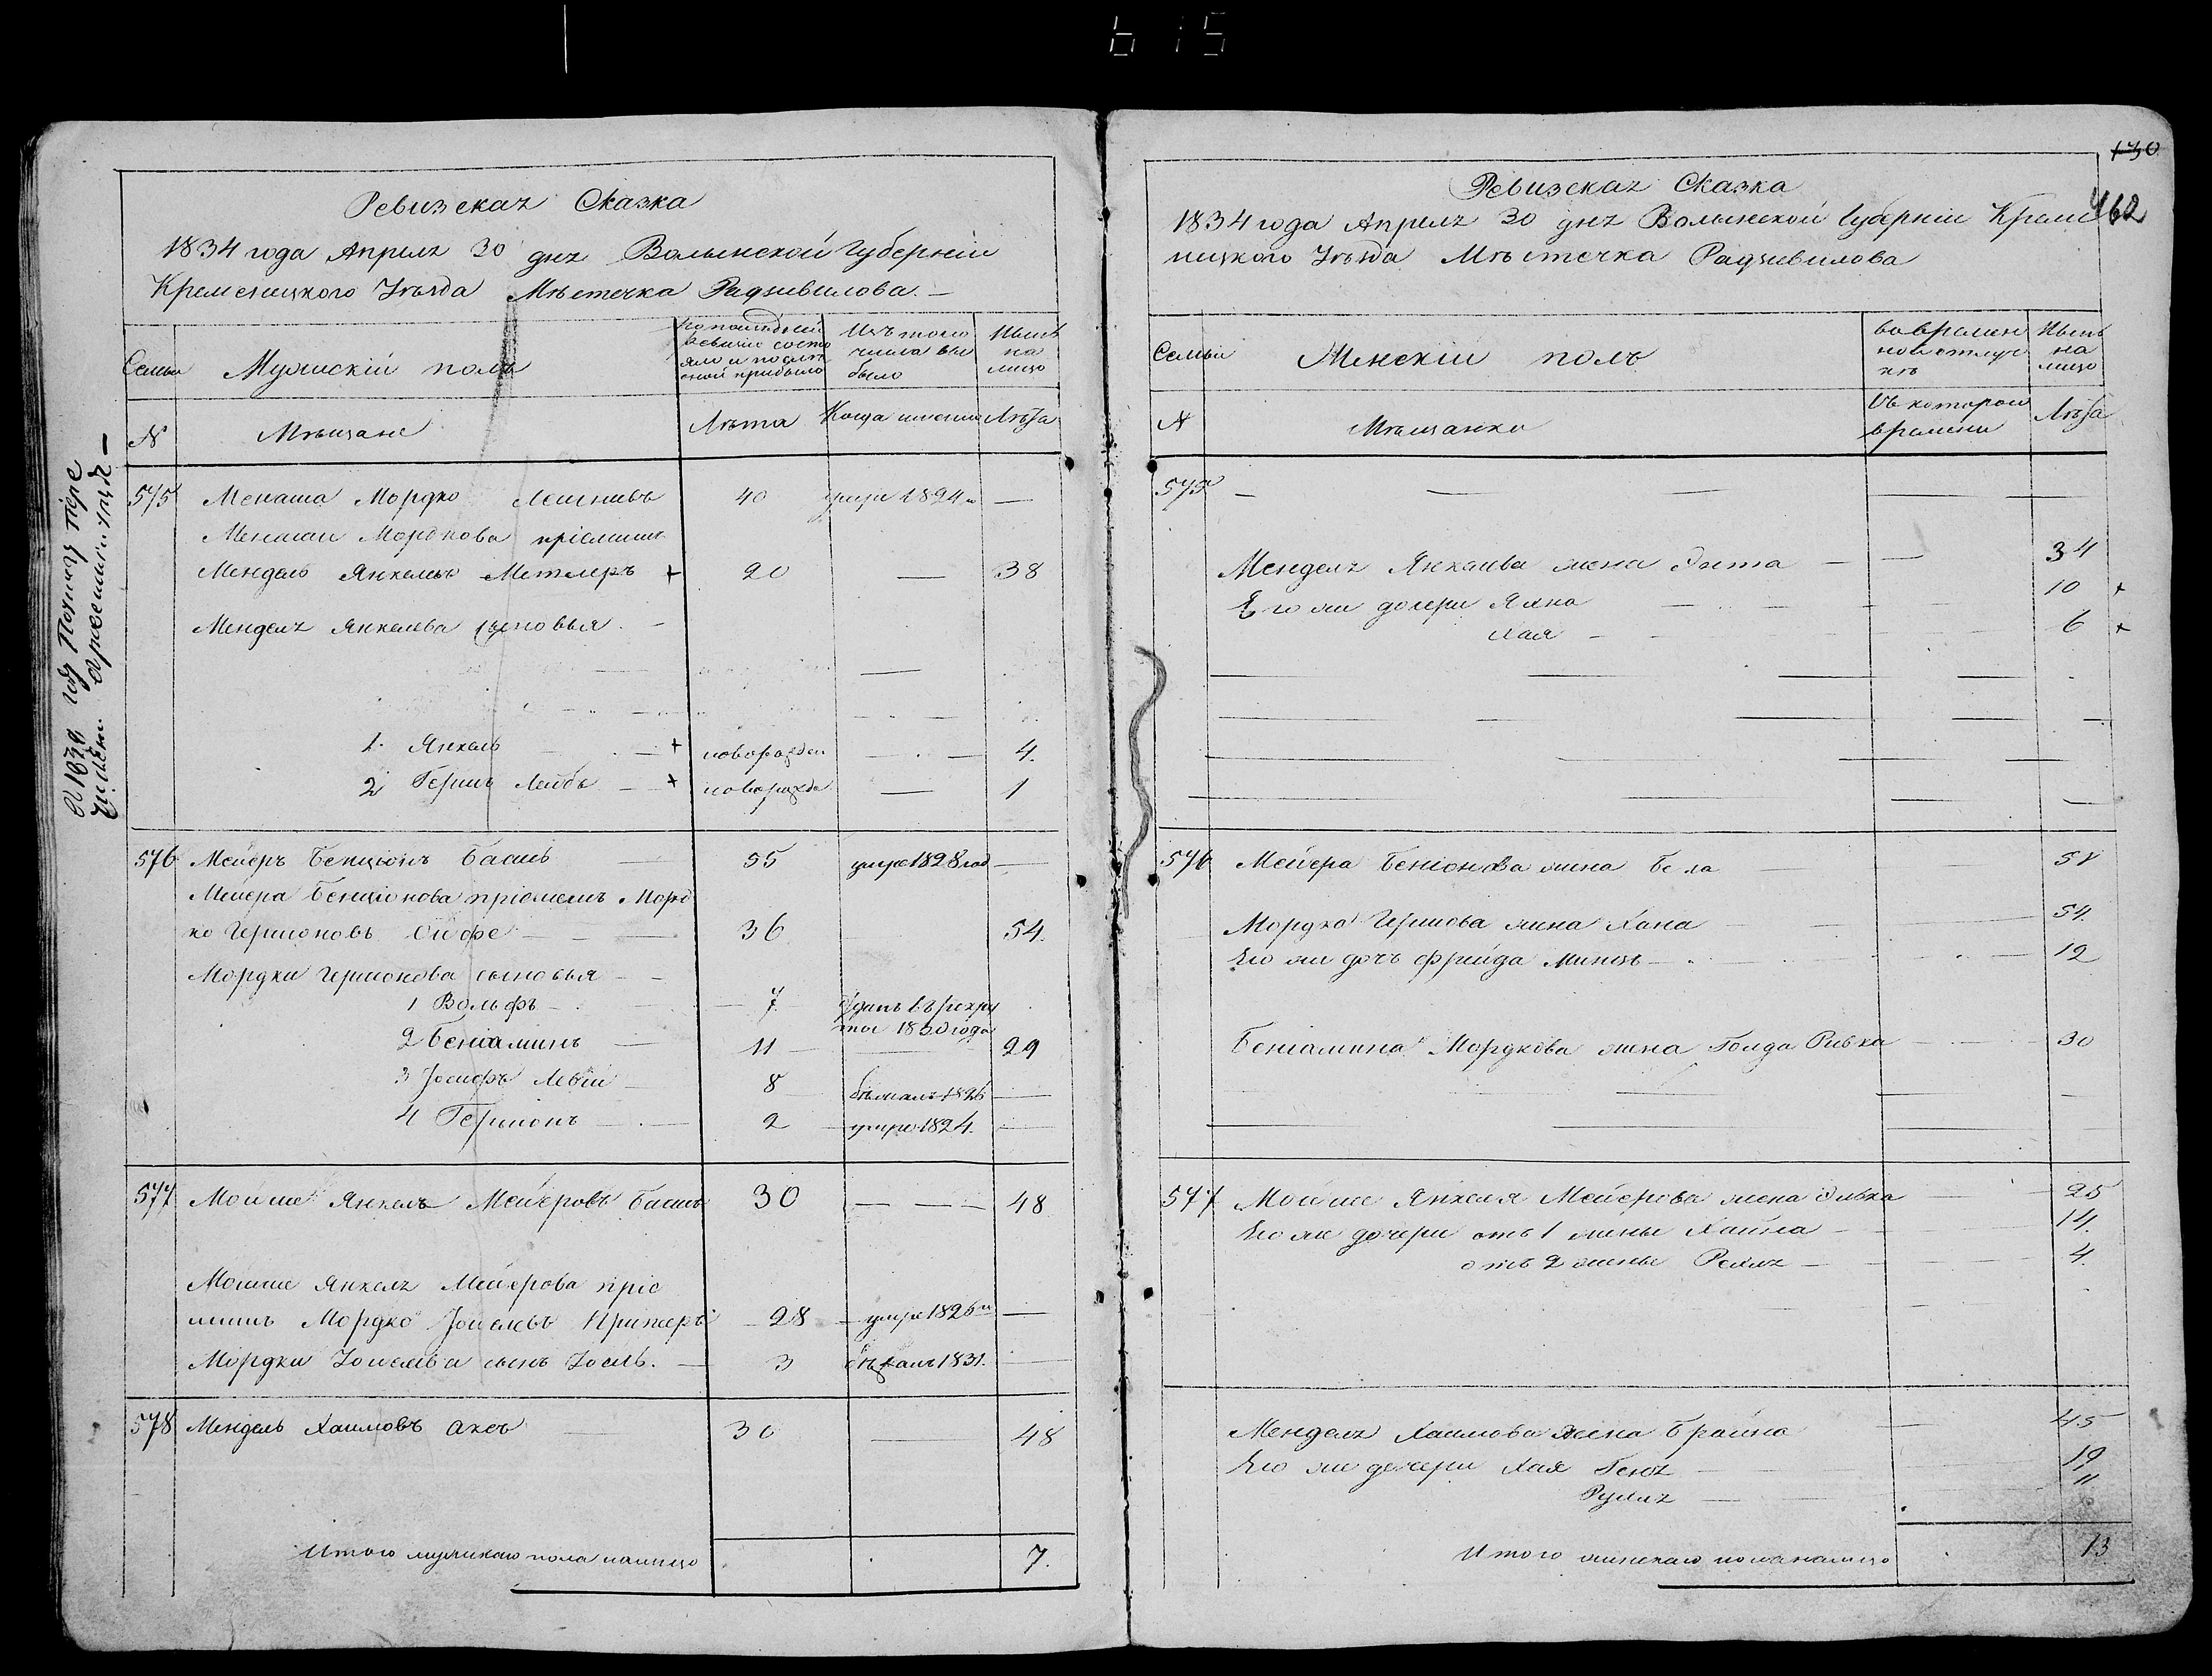 615
Ревизская Сказка
1834 года Апреля 30 дня Волынской Губернiи
Кременецкого Уѣзда Мѣстечка Радзивилова. —
Семьи
Мужскiй полъ
По последней ревизiи состояло и после оной прибыло
Изъ того числа выбыло
Нынѣ на лицо
N
Мѣщане
Лѣта
Когда именно
Лѣта
575 Менаша Мордко 40 умре 1824 —
Менаши Мордкова прiемышъ
Мендель Янкелевъ + 20 — 38
Менделя Янкелева сыновья. —
1. Янкель — + новорожден — 4.
2 Гершъ Лейбъ — + новорожде — 1
576 Мейеръ Бенцiонъ Басисъ 55 умре 1828 год —
Мейера Бенцiонова прiемышъ Морд
ко Гершоновъ 36 54.
Мордки Гершонова сыновья —
1 Вольфъ — 7. отданъ въ рекру
ты 1830 года
2 Бенiаминъ — 11 29
3 Iосифъ Левiй — 8 бѣжалъ 1826 —
4 Гершонъ — 2 умре 1824. —
577 Мошше Янкель Мейеровъ Басисъ 30 — 48
Мошше Янкеля Мейерова прiе
мышъ Мордко Iоселевъ 28 умре 1826 —
Мордки Iоселева сынъ Iосль. — 3 бѣжалъ 1831. —
578 Мендель Хаимовъ Аксъ 30 — 48
Итого мужскаго пола налицо 7.
130
462
Ревизская Сказка
1834 года Апреля 30 дня Волынской Губернiи Креме
нецкого Уѣзда Мѣстечка Радзивилова
Семьи
Женскiй полъ
во временной отлучкѣ
Нынѣ на лицо
N
Мѣщанки
Съ котораго времени
Лѣта
575 —
Менделя Янкелева жена Энта — 34
Его же дочери Яхна 10 +
Хая — 6 +
576 Мейера Бенцiонова жена Бела 51
Мордка Гершова жена Хана 54.
Его же дочъ Фрейда Минцъ — 12
Бенiамина Мордкова жена Голда Ривка 30
577 Мошше Янкеля Мейерова жена Элька 25
Его же дочери отъ 1 жены Хайка — 14.
отъ 2 жены Рехля — 4.
Менделя Хаимова жена Брайна 45
Его же дочери Хая Геня — 19
Рухля — 11
Итого женскаго пола налицо 13